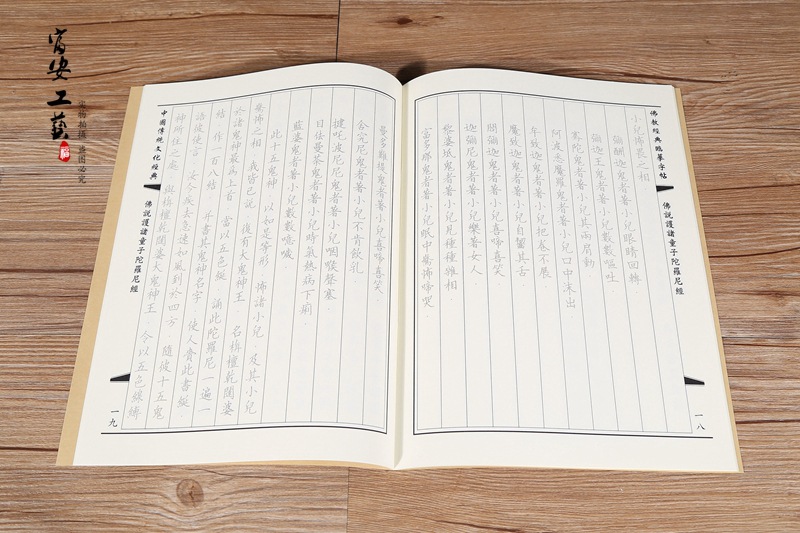 佛教經典臨摹字帖
佛說護諸童子陀羅尼經
一八
小兒怖畏之相.
彌酬迦鬼者著小兒眼睛回轉.
彌迦王鬼者著小兒數數嘔吐.
騫陀鬼者著小兒其兩肩動.
阿波悉魔羅鬼者著小兒口中沫出.
牟致迦鬼者著小兒把卷不展.
魔致迦鬼者著小兒自齧其舌.
閻彌迦鬼者著小兒喜啼喜笑.
迦彌尼鬼者著小兒樂著女人.
梨婆坻鬼者著小兒見種種雜相.
富多那鬼者著小兒眠中驚怖啼哭.
曼多難提鬼者著小兒喜啼喜笑.
舍究尼鬼者著小兒不肯飲乳.
揵吒波尼尼鬼者著小兒咽喉聲塞.
目佉曼荼鬼者著小兒時氣熱病下痢.
藍婆鬼者著小兒數數噫噦.
此十五鬼神.以如是等形.怖諸小兒.及其小兒
驚怖之相.我皆已說.復有大鬼神王.名栴檀乾闥婆
於諸鬼神最為上首.當以五色綖.誦此陀羅尼.一遍一
結.作一百八結.并書其鬼神名字.使人賫此書綖.
語彼使言.汝今疾去急速如風到於四方.隨彼十五鬼
神所住之處.與栴檀乾闥婆大鬼神王.令以五色綖縛
中國傳統文化經典
佛說護諸童子陀羅尼經
一九
富安工藝
實物拍攝 盜圖必究